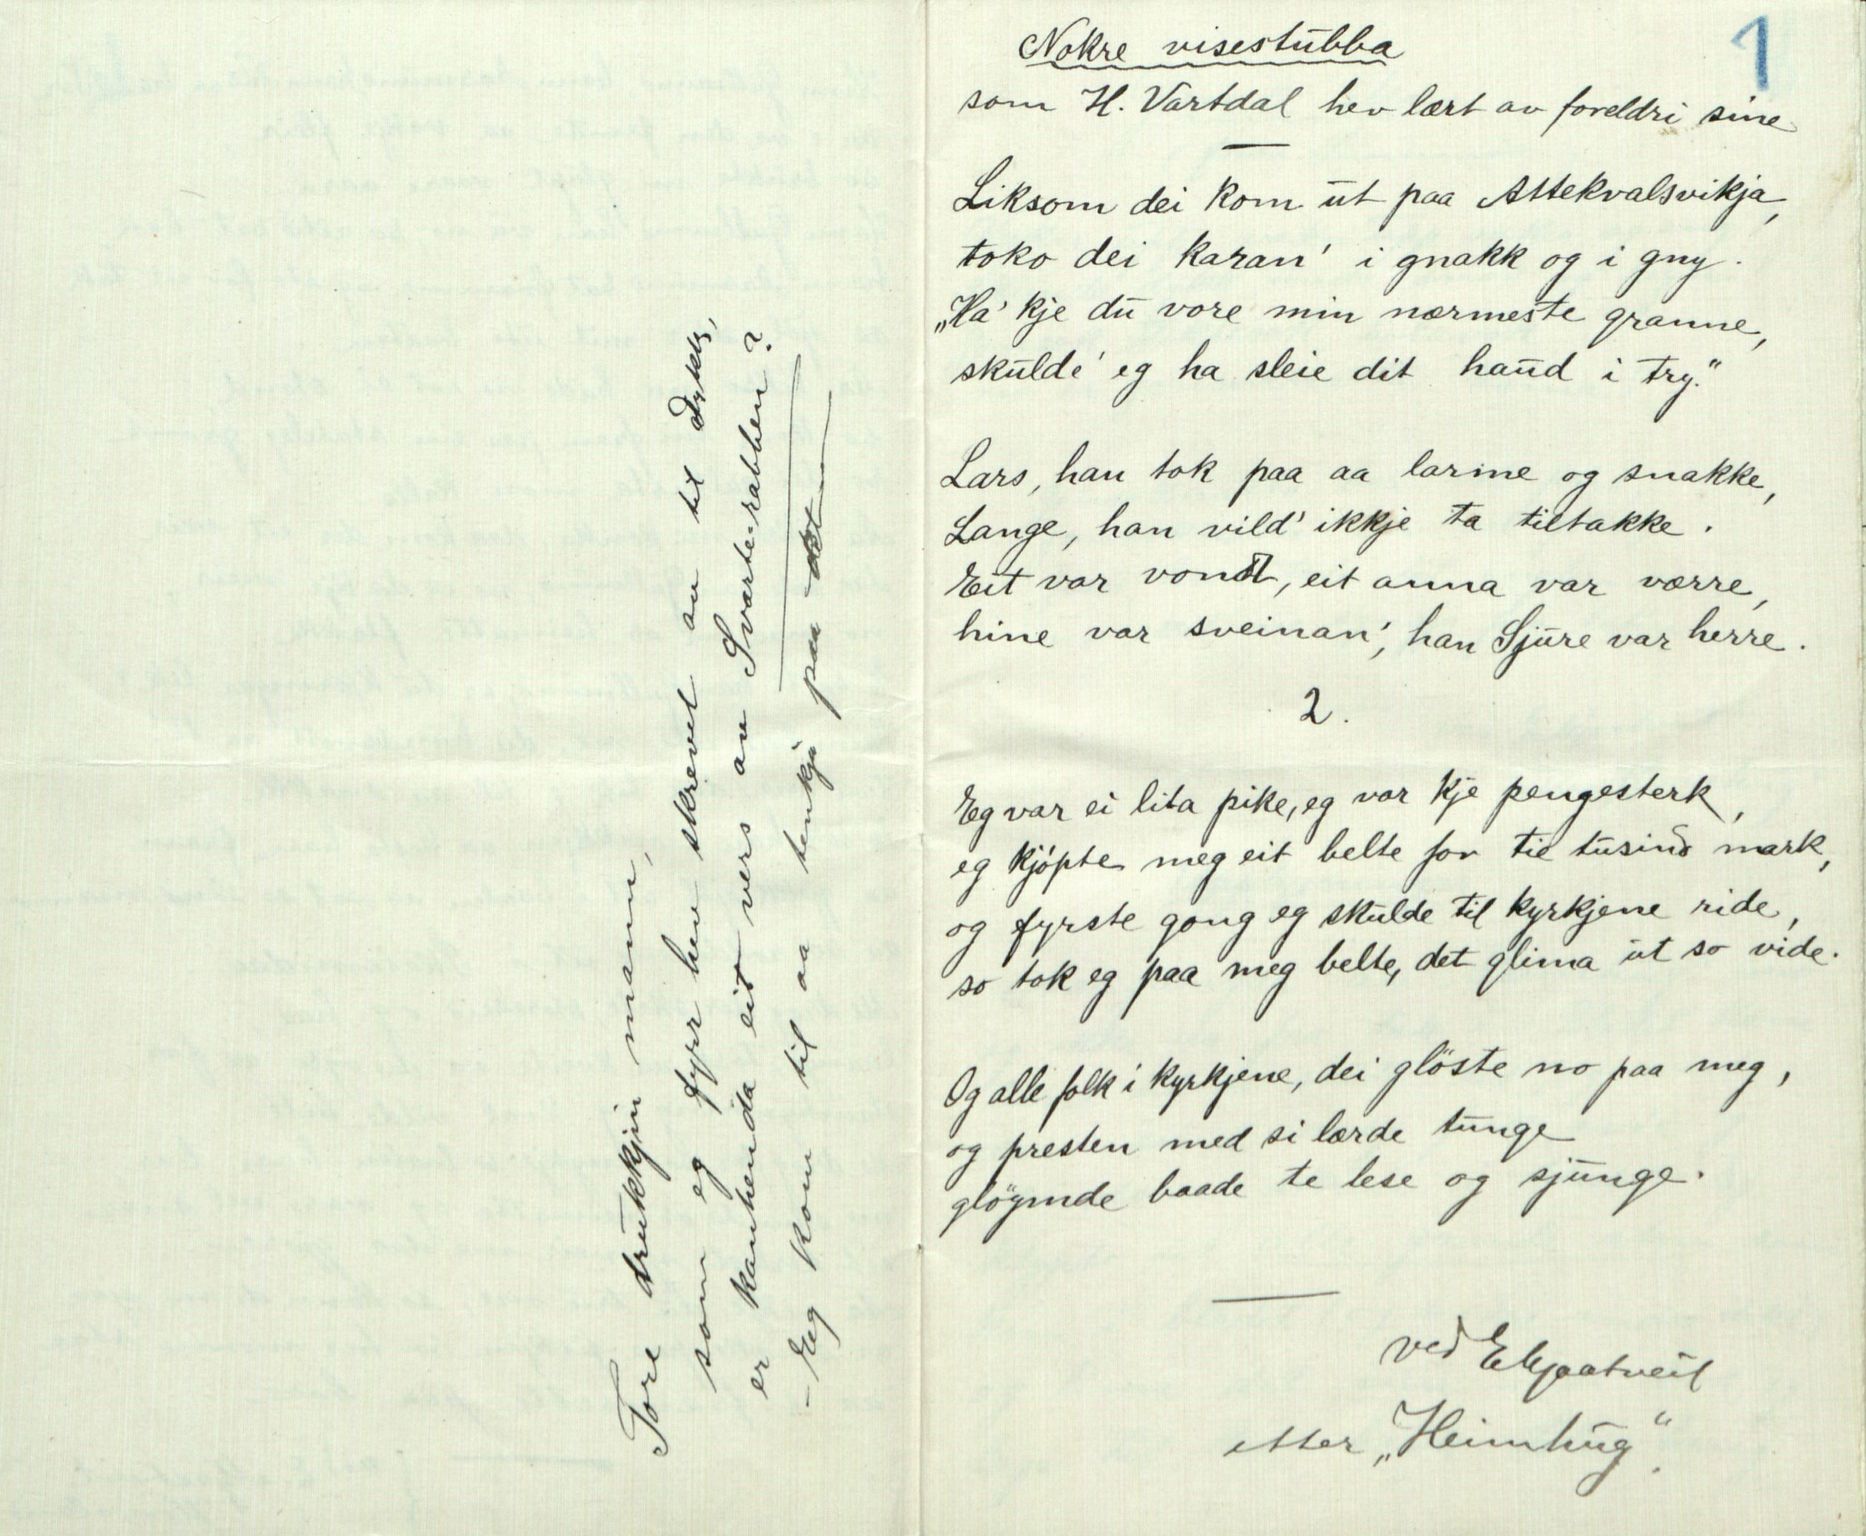 Tore drukkjin mann,
som eg fyrr hev skrevet av til Dykk,
er kanhenda eit vers av Svarteirabben?
- Eg kom til aa tenkja paa det
1
Nokre visestubba
som H. Vartdal hev lært av foreldri sine
Liksom dei kom ut paa Attekvalsvikja,
toko dei karan' i gnakk og i gny.
„Ha' kje du vore min nærmeste granne,
skulde' eg ha sleie dit haud i try."
Lars, han tok paa aa larme og snakke,
Lange, han vild' ikkje ta tiltakke.
Eit var vondt, eit anna var værre,
hine var sveinan', han Sjure var herre.
2.
Eg var ei lita pike, eg var kje pengesterk,
eg kjøpte meg eit belte for tie tusind mark,
og fyrste gong eg skulde til kyrkjene ride,
so tok eg paa meg belte, det glima ut so vide.
Og alle folk i kyrkjene, dei glöste no paa meg,
og presten med si lærde tunge
glöymde baade te lese og sjunge.
ved E Kjaatveit
etter „Heimhug".